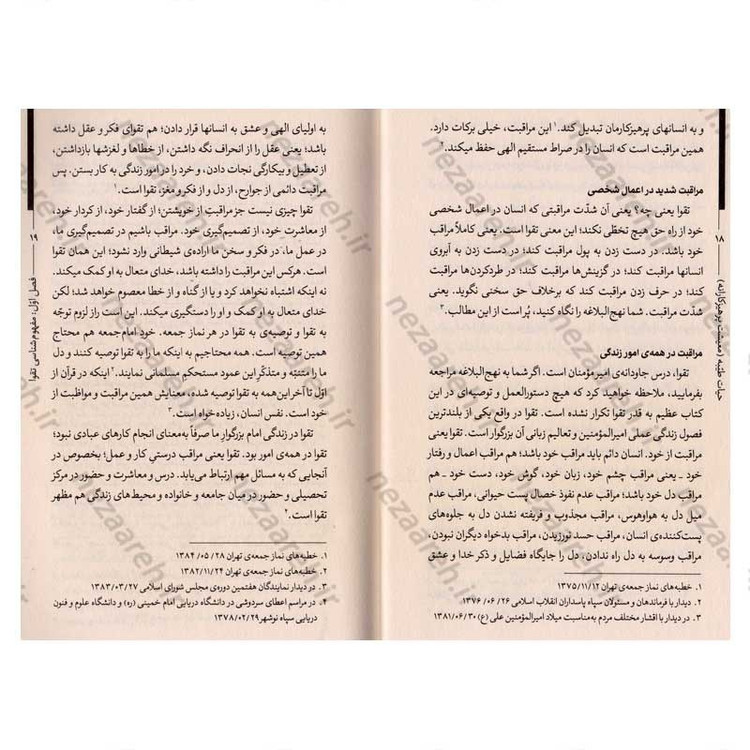 و به انسانهای پرهیزکارمان تبدیل کند.۱ این مراقبت، خیلی برکات دارد.
همین مراقبت است که انسان را در صراط مستقیم الهی حفظ میکند.۲
مراقبت شدید در اعمال شخصی
تقوا یعنی چه؟ یعنی آن شدّت مراقبتی که انسان در اعمال شخصی
خود از راه حق هیچ تخطّی نکند؛ این معنی تقوا است. یعنی کاملاً مراقب
خود باشد. در دست زدن به پول مراقبت کند؛ در دست زدن به آبروی
انسانها مراقبت کند؛ در گزینش‌ها مراقبت کند؛ در طردکردن‌ها مراقبت
کند؛ در حرف زدن مراقبت کند که برخلاف حق سخنی نگوید. یعنی
شدّت مراقبت. شما نهج‌البلاغه را نگاه کنید، پُر است از این مطالب.۳
مراقبت در همه‌ی امور زندگی
تقوا، درس جاودانه‌ی امیرمؤمنان است. اگر شما به نهج‌البلاغه مراجعه
بفرمایید، ملاحظه خواهید کرد که هیچ دستورالعمل و توصیه‌ای در این
کتاب عظیم به قدر تقوا تکرار نشده است. تقوا در واقع یکی از بلندترین
فصول زندگی عملی امیرالمؤمنین و تعالیم زبانی آن بزرگوار است. تقوا یعنی
مراقبت از خود. انسان دائم باید مراقب خود باشد؛ هم مراقب اعمال و رفتار
خود ـ یعنی مراقب چشم خود، زبان خود، گوش خود، دست خود ـ هم
مراقب دل خود باشد؛ مراقب عدم نفوذ خصال پست حیوانی، مراقب عدم
میل دل به هواوهوس، مراقب مجذوب و فریفته نشدن دل به جلوه‌های
پست‌کننده‌ی انسان، مراقب حسد نورزیدن، مراقب بدخواه دیگران نبودن،
مراقب وسوسه به دل راه ندادن، دل را جایگاه فضایل و ذکر خدا و عشق
۱. خطبه‌های نماز جمعه‌ی تهران ۱۳۷۵/۱۱/۱۲
۲. دیدار با فرماندهان و مسئولان سپاه پاسداران انقلاب اسلامی ۲۶ /۰۶ /۱۳۷۶
۳. در دیدار با اقشار مختلف مردم به‌مناسبت میلاد امیرالمؤمنین علی (ع) ۱۳۸۱/۰۶/۳۰
۱۸
حیات طیّبه (معیشت پرهیزکارانه)
به اولیای الهی و عشق به انسانها قرار دادن؛ هم تقوای فکر و عقل داشته
باشد؛ یعنی عقل را از انحراف نگه داشتن، از خطاها و لغزشها بازداشتن،
از تعطیل و بیکارگی نجات دادن، و خرد را در امور زندگی به کار بستن. پس
مراقبت دائمی از جوارح، از دل و از فکر و مغز، تقوا است.۱
تقوا چیزی نیست جز مراقبت از خویشتن؛ از گفتار خود، از کردار خود،
از معاشرت خود، از تصمیم‌گیری خود. مراقب باشیم در تصمیم‌گیری ما،
در عمل ما، در فکر و سخن ما اراده‌ی شیطانی وارد نشود؛ این همان تقوا
است. هرکس این مراقبت را داشته باشد، خدای متعال به او کمک میکند.
نه اینکه اشتباه نخواهد کرد و یا از گناه و از خطا معصوم خواهد شد؛ لکن
خدای متعال به او کمک و او را دستگیری میکند. این است راز لزوم توجّه
به تقوا و توصیه‌ی به تقوا در هر نماز جمعه. خود امام‌جمعه هم محتاج
همین توصیه است. همه محتاجیم به اینکه ما را به تقوا توصیه کنند و دل
ما را متنبّه و متذکّر این عمود مستحکم مسلمانی نمایند.۲ اینکه در قرآن از
اوّل تا آخر این‌همه به تقوا توصیه شده، معنایش همین مراقبت و مواظبت از
خود است. نفس انسان، زیاده‌خواه است.۳
تقوا در زندگی امام بزرگوار ما صرفاً به‌معنای انجام کارهای عبادی نبود؛
تقوا در همه‌ی امور بود. تقوا یعنی مراقب درستیِ کار و عمل؛ بخصوص در
آنجایی که به مسائل مهم ارتباط می‌یابد. درس و معاشرت و حضور در مرکز
تحصیلی و حضور در میان جامعه و خانواده و محیط‌های زندگی هم مظهر
تقوا است.۴
۱. خطبه‌های نماز جمعه‌ی تهران ۲۸ /۰۵ /۱۳۸۴
۲. خطبه‌های نماز جمعه‌ی تهران ۱۳۸۲/۱۱/۲۴
۳. در دیدار نمایندگان هفتمین دوره‌ی مجلس شورای اسلامی ۱۳۸۳/۰۳/۲۷
۴. در مراسم اعطای سردوشی در دانشگاه دریایی امام خمینی (ره) و دانشگاه علوم و فنون
دریایی سپاه نوشهر ۱۳۷۸/۰۲/۲۹
فصل اوّل: مفهوم‌شناسی تقوا
nezaareh.ir